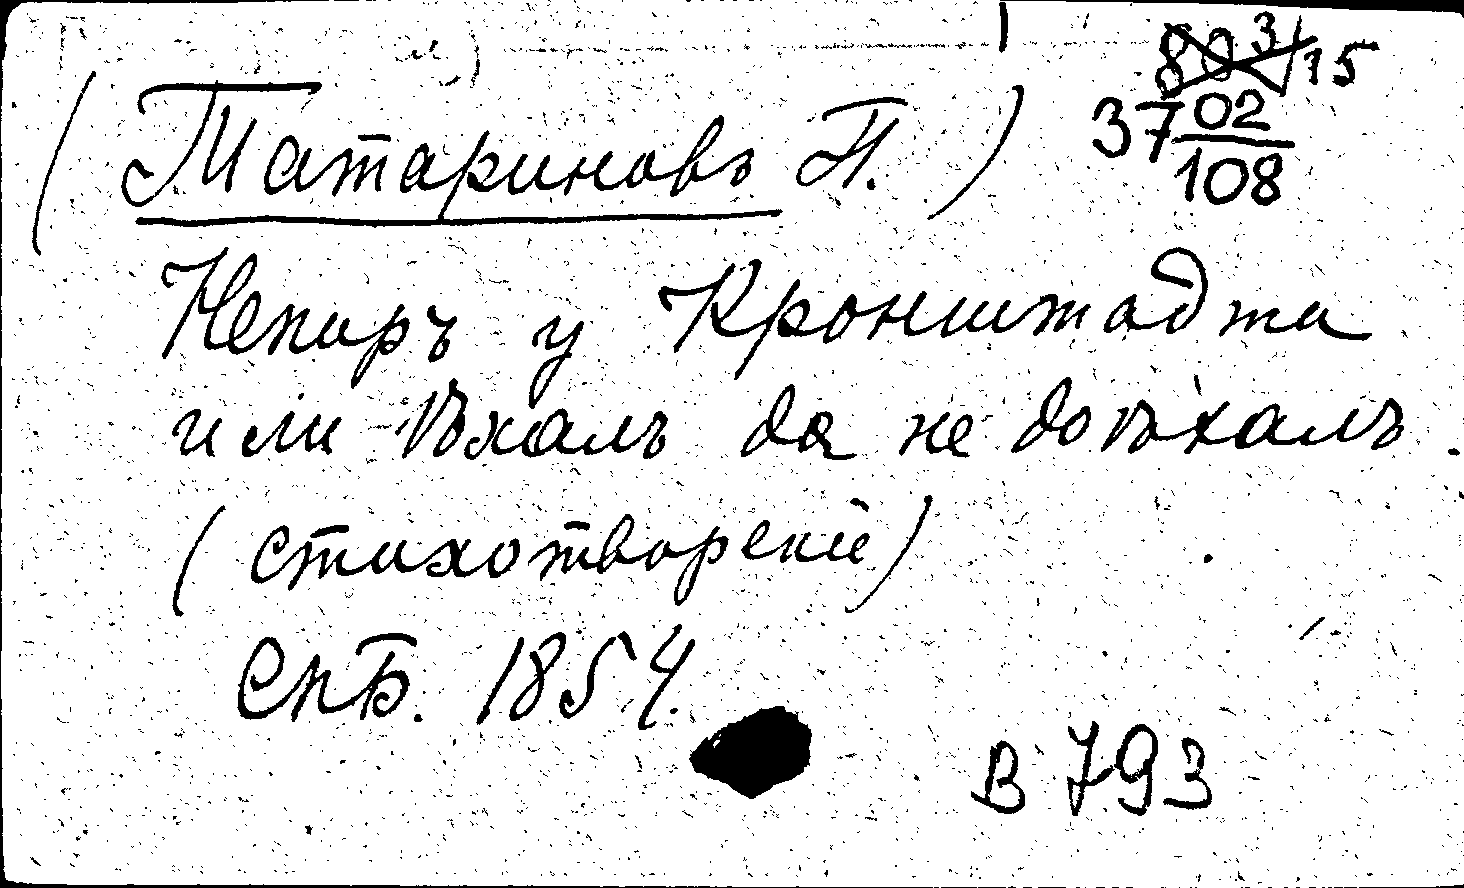 80 3/15
37 02/108
(Татариновъ П.)
Непиръ у Кронштадта
или Ѣхалъ да не доѣхалъ.
(стихотвореніе)
СпБ. 1854.
В 793